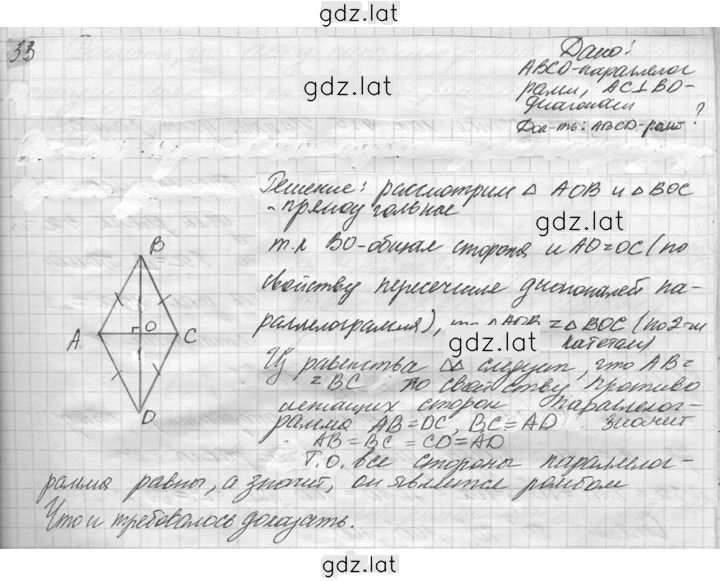 gdz.lat
33
Дано:
ABCD-параллелог
рамм, AC⊥BD-
диагонали
Док-ть: ABCD-ромб?
gdz.lat
Решение: рассмотрим △ AOB и △ BOC
-прямоугольные
gdz.lat
т.к BO-общая сторона и AO=OC (по
свойству пересечние диагоналей па-
раллелограмма), то △AOB = △BOC (по 2-м
катетам)
gdz.lat
Из равенства △△ следует, что AB=
=BC по свойству противо
лежащих сторон параллелог-
рамма AB=DC, BC=AD значит
AB=BC=CD=AD
Т.О. все стороны параллелог-
рамма равны, а значит, он является ромбом
Что и требовалось доказать.
B
A
O
C
D
gdz.lat